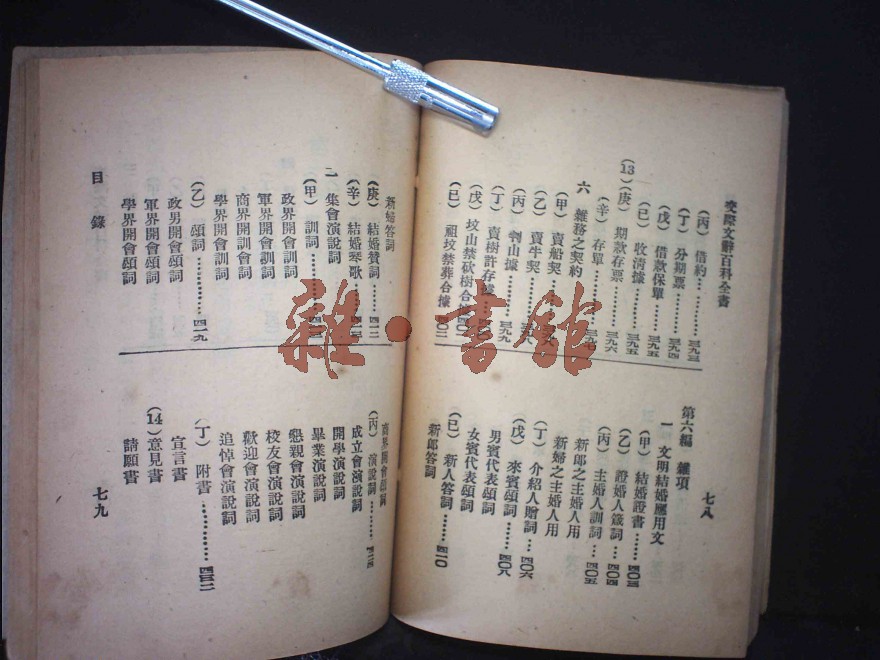 交際文辭百科全書
七八
(丙)借約………三九三
(丁)分期票……三九四
(戊)借款保單…三九五
(已)收清據……三九五
(13)(庚)期款存票…三九六
(辛)存單
六 雜務之契約
(甲)賣船契
(乙)賣牛契
(丙)判山據
(丁)賣樹許存據…三九九
(戊)坟山禁砍樹合據
(已)祖坟禁葬合據
第六編 雜項
一 文明結婚應用文
(甲)結婚證書……四〇三
(乙)證婚人箴詞…四〇四
(丙)主婚人訓詞…四〇五
新郎之主婚人用
新婦之主婚人用
(丁)介紹人贈詞…四〇六
(戊)來賓頌詞……四〇八
男賓代表頌詞
女賓代表頌詞
(已)新人答詞……四一〇
新郎答詞
新婦答詞
(庚)結婚贊詞……四一二
(辛)結婚琴歌
二 集會演說詞
(甲)訓詞
政界開會訓詞
軍界開會訓詞
商界開會訓詞
學界開會訓詞
(乙)頌詞…………四一九
政男開會頌詞
軍界開會頌詞
學界開會頌詞
商界開會頌詞
(丙)演說詞………四二四
成立會演說詞
開學演說詞
畢業演說詞
懇親會演說詞
校友會演說詞
歡迎會演說詞
追悼會演說詞
(丁)附書…………四三二
宣言書
(14)意見書
請願書
目錄
七九
雜·書館